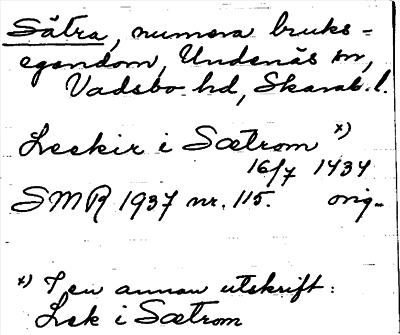 Sätra, numera bruks-
egendom, Undenäs sn,
Vadsbo hd, Skarab. l.
Leckir i Sætrom x)
16/7 1434
SMR 1937 nr. 115. orig.
x) I en annan utskrift:
Lek i Sætrom